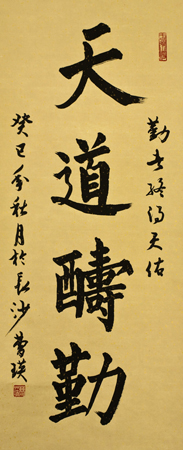 勤者终得天佑
天道醻勤
癸巳年秋月於長沙曹瑛